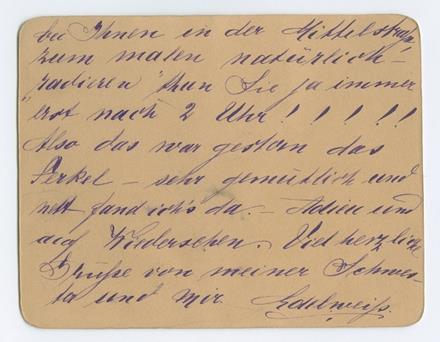 bei Ihnen in der Mittelstraße
zum malen natürlich –
„radieren" thun Sie ja immer
erst nach 2 Uhr! ! ! ! ! !
Also das war gestern das
Ferkel – sehr gemütlich und
nett fand ich's da. – Adieu und
auf Wiedersehen. Viel herzliche
Grüße von meiner Schwes-
ter und mir Edelweiß.